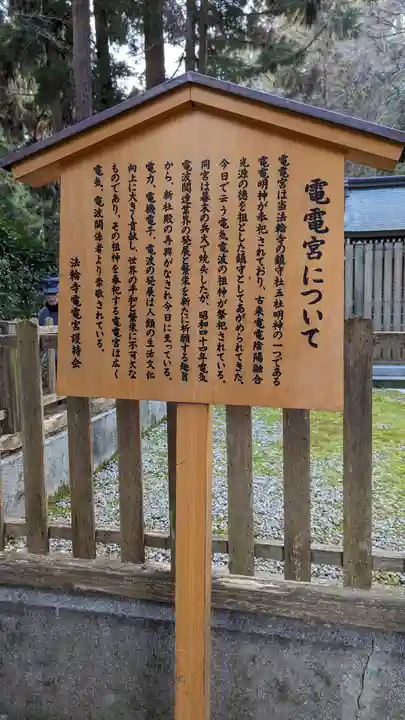 電電宮について
電電宮は当法輪寺の鎮守社五社明神の一つである
電電明神が奉祀されており、古来電電陰陽融合
光源の徳を祖とした鎮守としてあがめられてきた、
今日で云う電気電波の祖神が祭祀されている。
同宮は幕末の兵火で焼失したが、昭和四十四年電気
電波関連業界の発展と繁栄を新たに祈願する趣旨
から、新社殿の再興がなされ今日に至っている。
電力、電機電子、電波の発展は人類の生活文化
向上に大きく貢献し、世界の平和と繁栄に不可欠な
ものであり、その祖神を奉祀する電電宮は広く
電気、電波関係者より崇敬されている。
法輪寺電電宮護持会